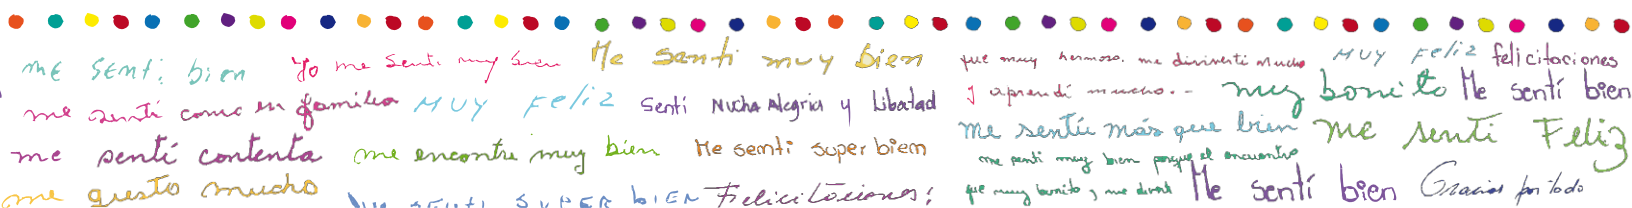 me senti bien
Yo me senti muy bien
Me senti muy bien
que muy hermoso. me divinerti mucho
MUY FeLiz
felicitaciones
me sentí como en familia
MUY FeLiz
Sentí Mucha Alegria y Libertad
y aprendí mucho...
muy bonito
Me sentí bien
me sentí contenta
me encontre muy bien
Me semti super biem
me sentíu más que bien
me sentí Feliz
me gusto mucho
me senti super bien
Felicitaciones!
me senti muy bien porque el encuentro
fue muy bonito y me diverti
Me sentí bien
Gracias por todo